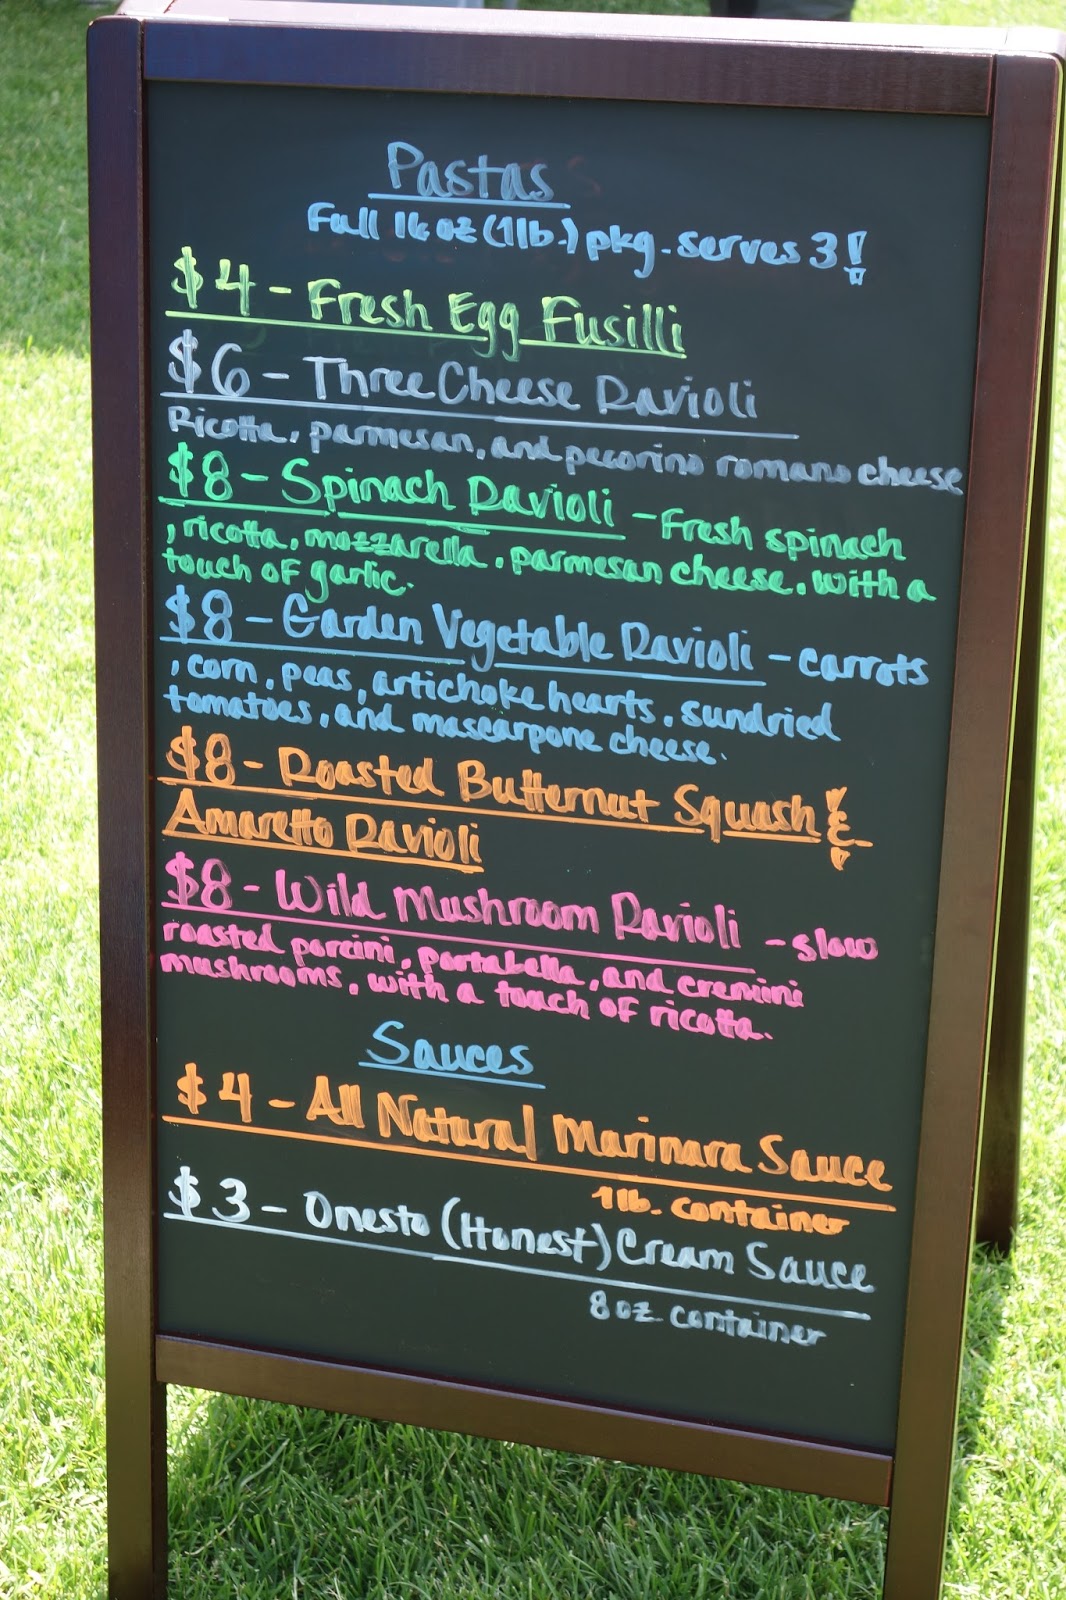 Pastas
Full 16 oz (1lb.) pkg. serves 3!
$4 - Fresh Egg Fusilli
$6 - Three Cheese Ravioli
Ricotta, parmesan, and pecorino romano cheese
$8 - Spinach Ravioli - Fresh spinach
, ricotta, mozzarella, parmesan cheese, with a
touch of garlic.
$8 - Garden Vegetable Ravioli - carrots
, corn, peas, artichoke hearts, sundried
tomatoes, and mascarpone cheese.
$8 - Roasted Butternut Squash &
Amaretto Ravioli
$8 - Wild Mushroom Ravioli - slow
roasted porcini, portabella, and cremini
mushrooms, with a touch of ricotta.
Sauces
$4 - All Natural Marinara Sauce
1lb. container
$3 - Onesto (Honest) Cream Sauce
8 oz container